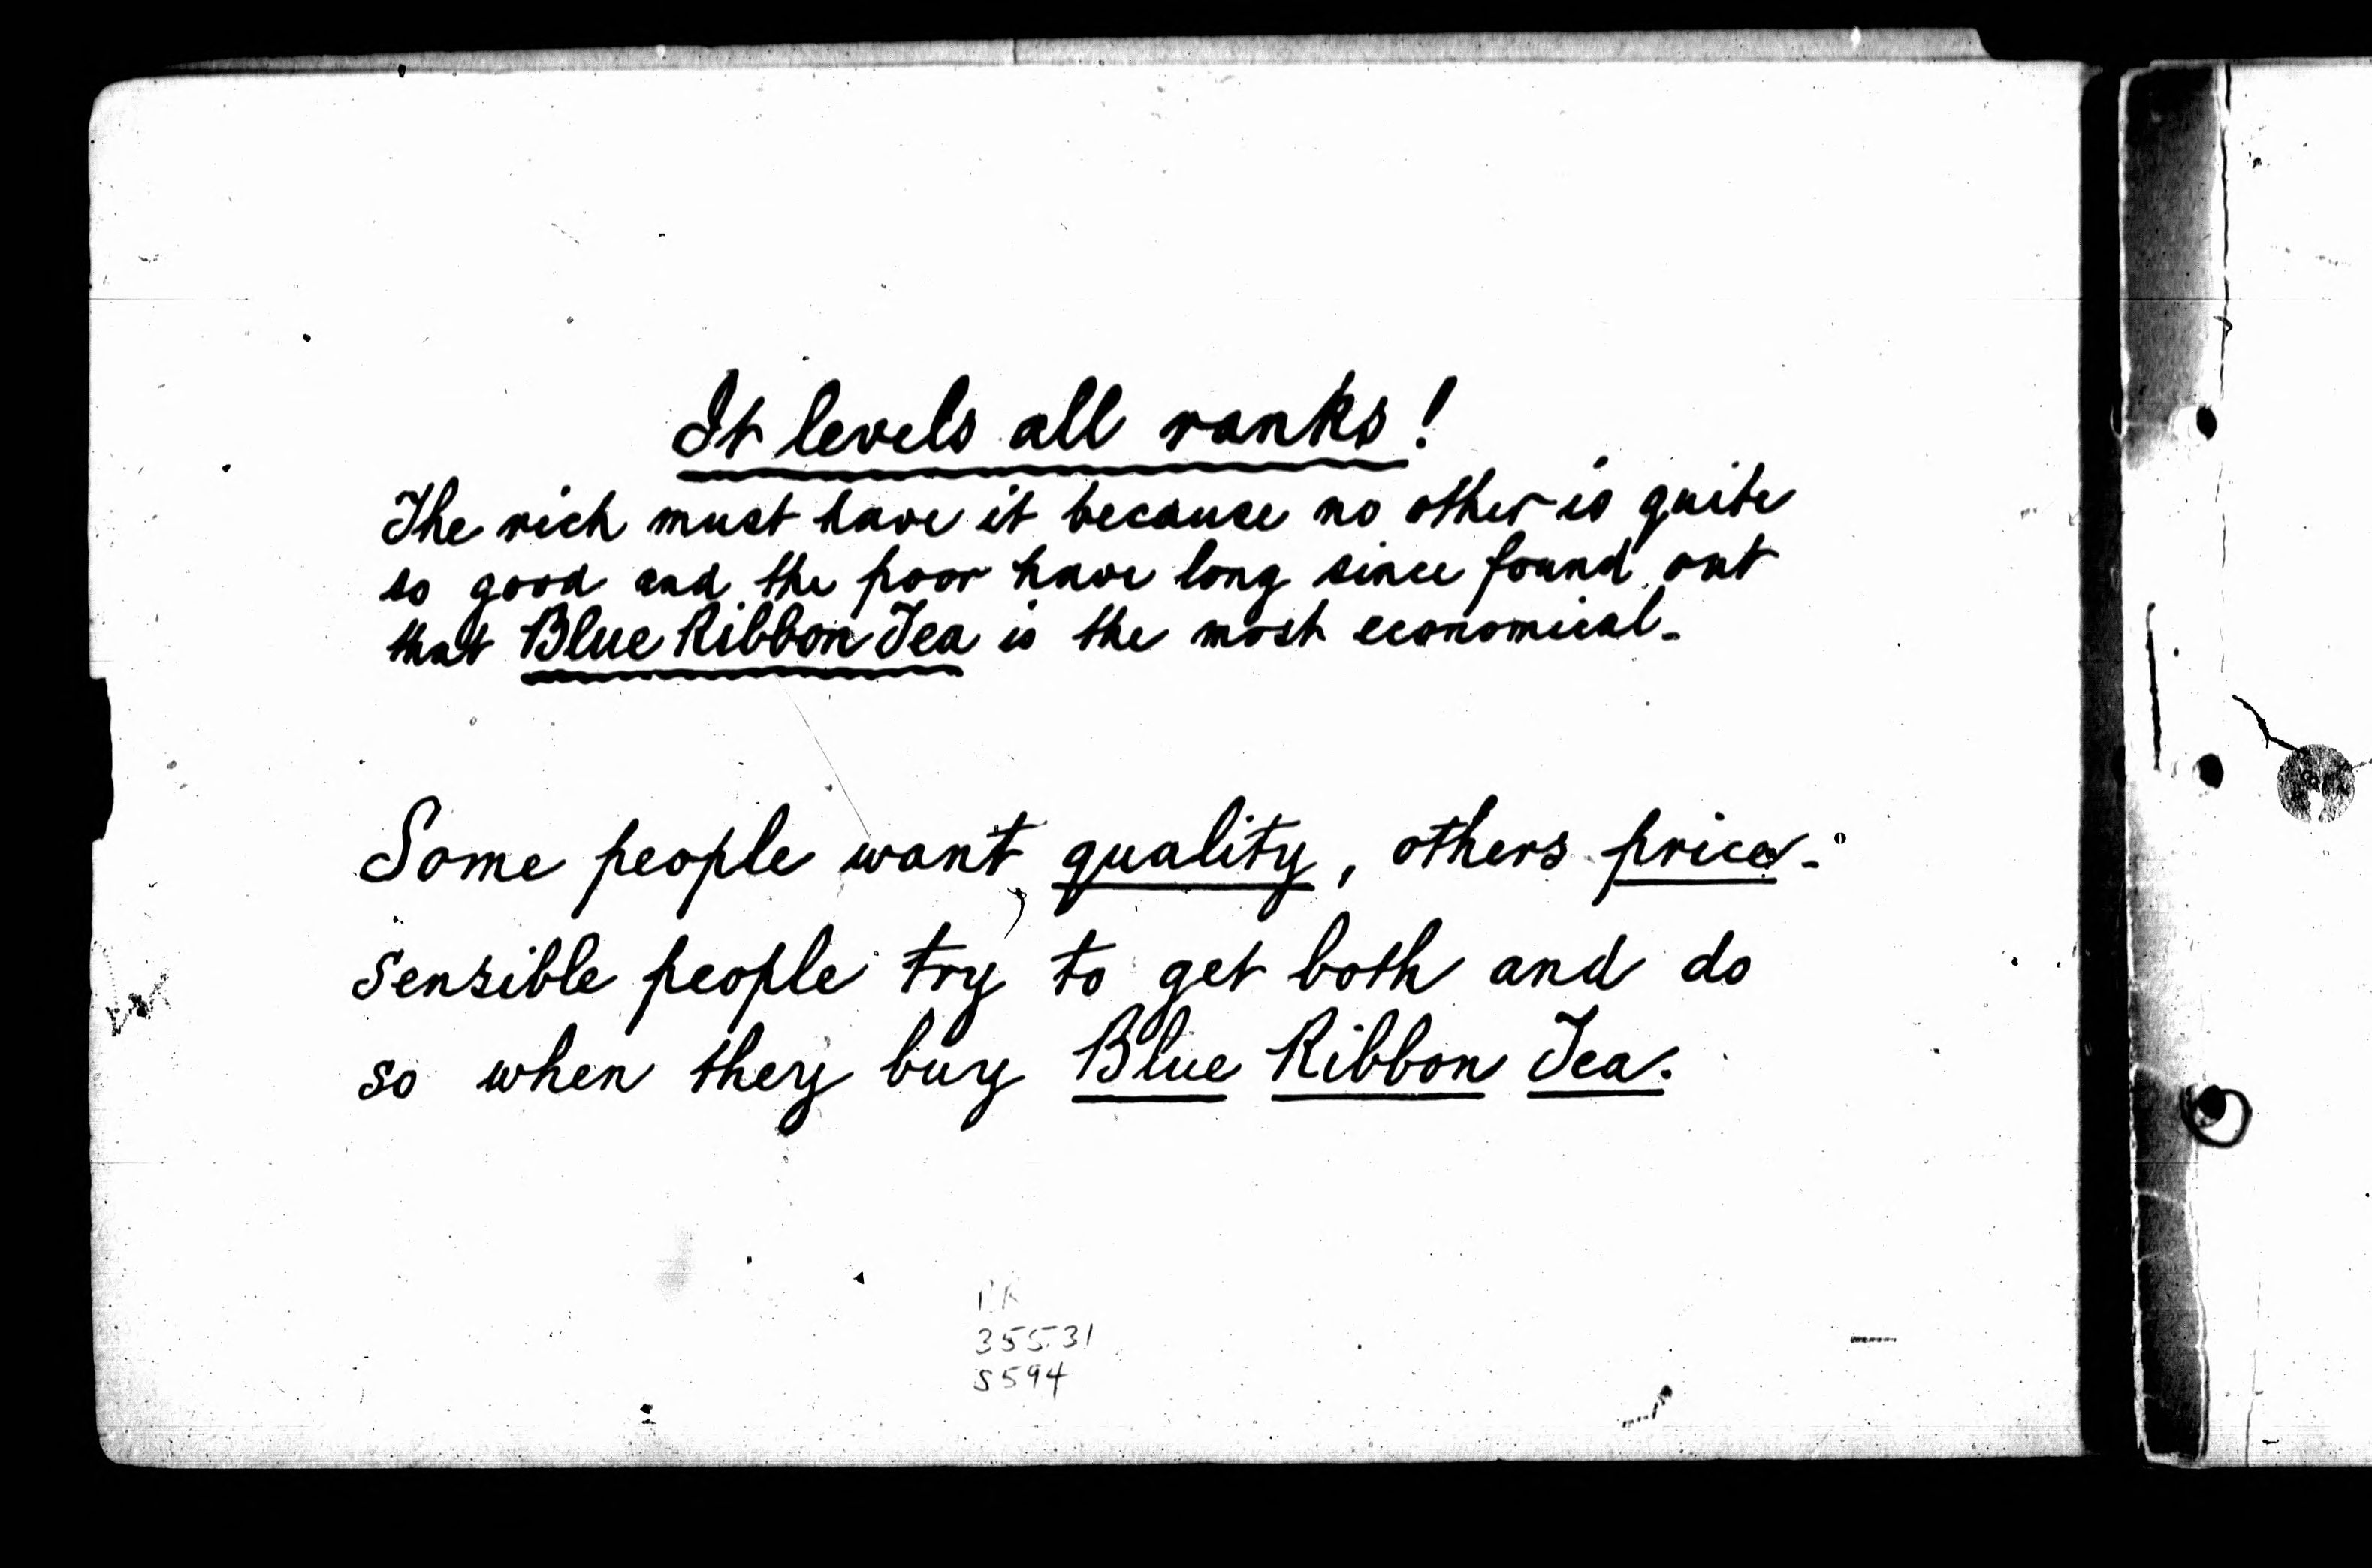 It levels all ranks!
The rich must have it because no other is quite
so good and the poor have long since found out
that Blue Ribbon Tea is the most economical.
Some people want quality, others price.
Sensible people try to get both and do
so when they buy Blue Ribbon Tea.
355.31
S594